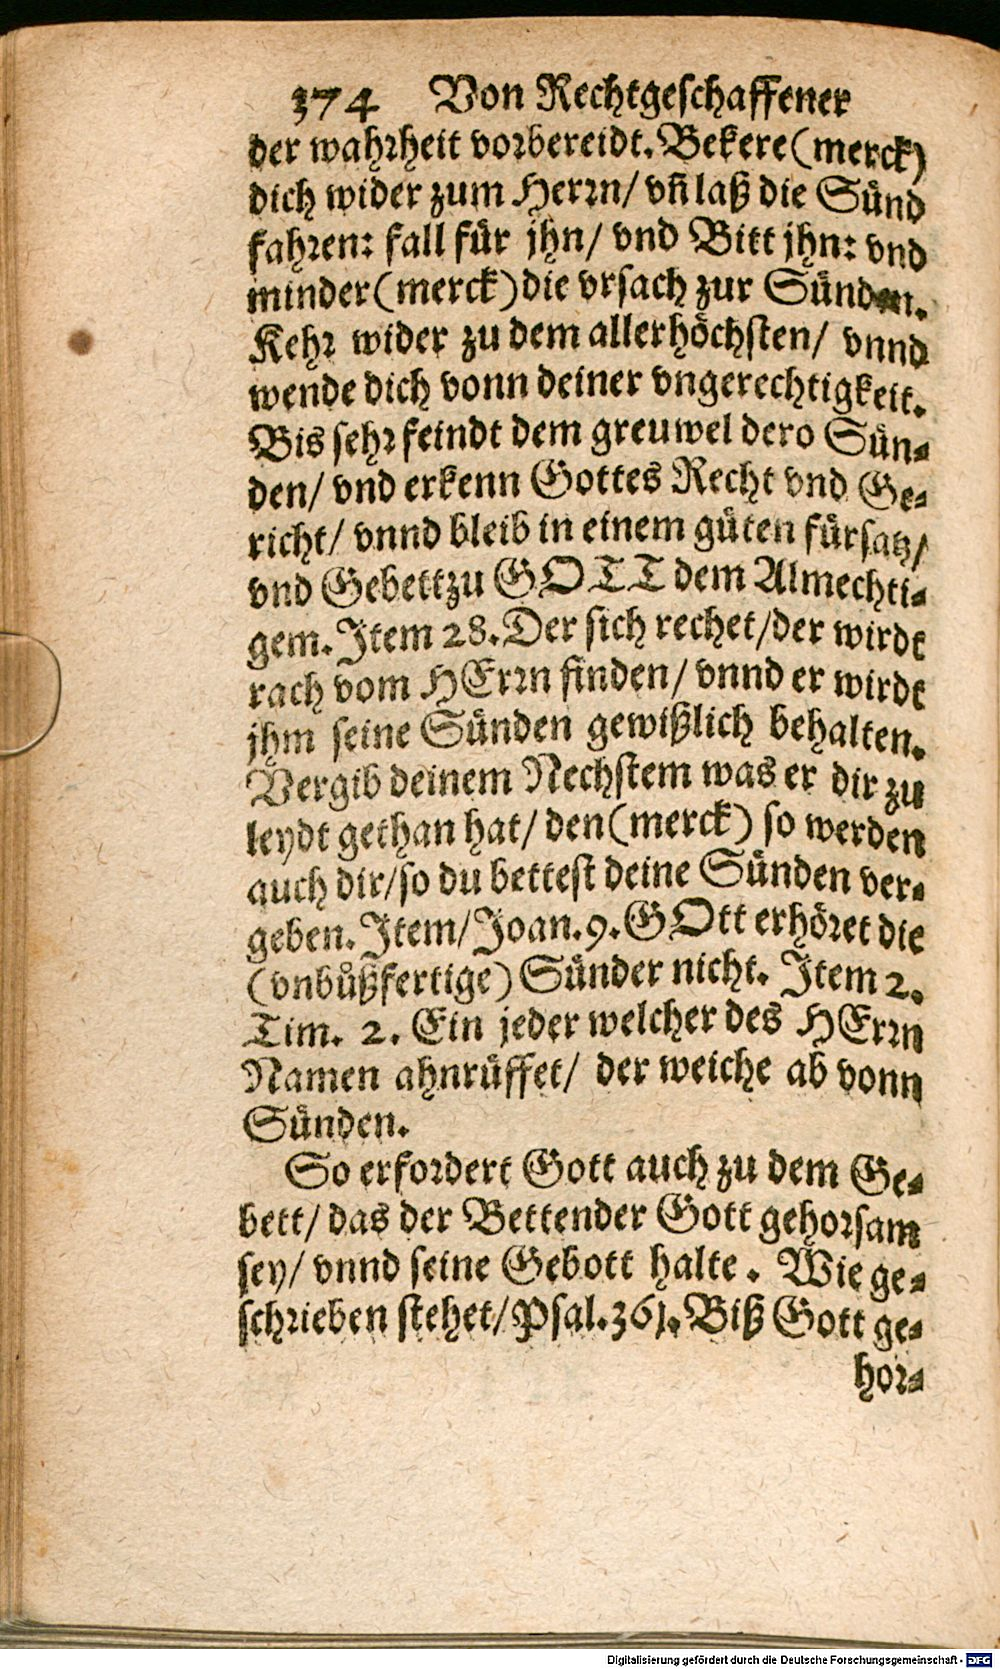 374 Von Rechtgeschaffener
der wahrheit vorbereidt. Bekere (merck)
dich wider zum Herrn/ vn̄ laß die Sünd
fahren: fall für jhn/ vnd Bitt jhn: vnd
minder (merck) die vrsach zur Sünden.
Kehr wider zu dem allerhöchsten/ vnnd
wende dich vonn deiner vngerechtigkeit.
Bis sehr feindt dem greuwel dero Sün-
den/ vnd erkenn Gottes Recht vnd Ge-
richt/ vnnd bleib in einem güten fürsatz/
vnd Gebett zu GOTT dem Almechti-
gem. Item 28. Der sich rechet/ der wirdt
rach vom HErrn finden/ vnnd er wirdt
jhm seine Sünden gewißlich behalten.
Vergib deinem Nechstem was er dir zu
leydt gethan hat/ den (merck) so werden
auch dir/ so du bettest deine Sünden ver-
geben. Item/ Joan. 9. GOtt erhöret die
(vnbůßfertige) Sünder nicht. Item 2.
Tim. 2. Ein jeder welcher des HErrn
Namen ahnrüffet/ der weiche ab vonn
Sünden.
So erfordert Gott auch zu dem Ge-
bett/ das der Bettender Gott gehorsam
sey/ vnnd seine Gebott halte. Wie ge-
schrieben stehet/ Psal. 36. Biß Gott ge-
hor-
Digitalisierung gefördert durch die Deutsche Forschungsgemeinschaft - DFG